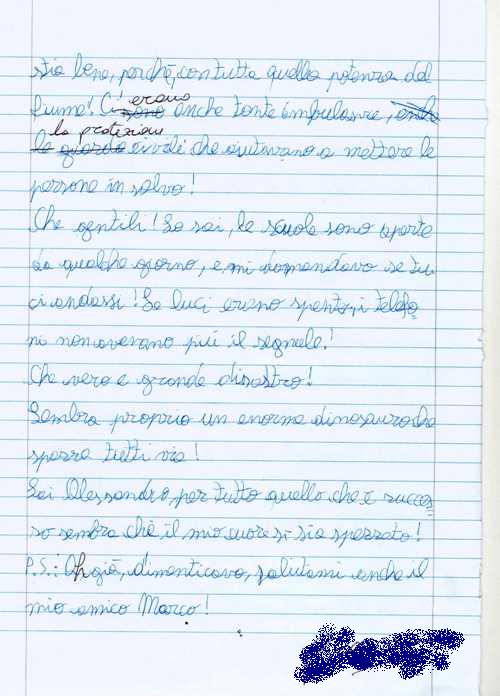 stia bene, perché, con tutta quella potenza del
fiume! Ci sono erano anche tante ambulanze, anche
le guardie la protezioni civili che aiutavano a mettere le
persone in salvo!
Che gentili! Lo sai, le scuole sono aperte
da qualche giorno, e mi domandavo se tu
ci andassi! Le luci erano spente, i telefo
ni non avevano più il segnale!
Che vero e grande disastro!
Sembra proprio un enorme dinosauro che
spazza tutti via!
Sai Alessandro, per tutto quello che è succes
so sembra che il mio cuore si sia spezzato!
P.S.: Ah già, dimenticavo, salutami anche il
mio amico Marco!